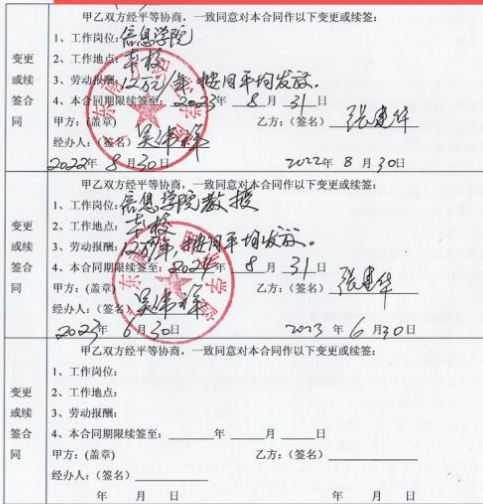 甲乙双方经平等协商，一致同意对本合同作以下变更或续签:
变更或续签合同
1、工作岗位:信息学院
2、工作地点:本校
3、劳动报酬:12万元/年,按月平均发放。
4、本合同期限续签至: 2023年 8 月 31 日
甲方:(盖章) 乙方:(签名) 张建华
经办人:(签名) 吴伟祥
2022年 8月30日 2022年 8 月30日
甲乙双方经平等协商，一致同意对本合同作以下变更或续签:
变更或续签合同
1、工作岗位:信息学院教授
2、工作地点:本校
3、劳动报酬:12万/年,按月平均发放。
4、本合同期限续签至:2024年 8 月 31 日
甲方:(盖章) 乙方:(签名) 张建华
经办人:(签名) 吴伟祥
2023年 6月30日 2023 年 6 月30日
甲乙双方经平等协商，一致同意对本合同作以下变更或续签:
变更或续签合同
1、工作岗位:
2、工作地点:
3、劳动报酬:
4、本合同期限续签至: 年 月 日
甲方:(盖章) 乙方:(签名)
经办人:(签名)
年 月 日 年 月 日